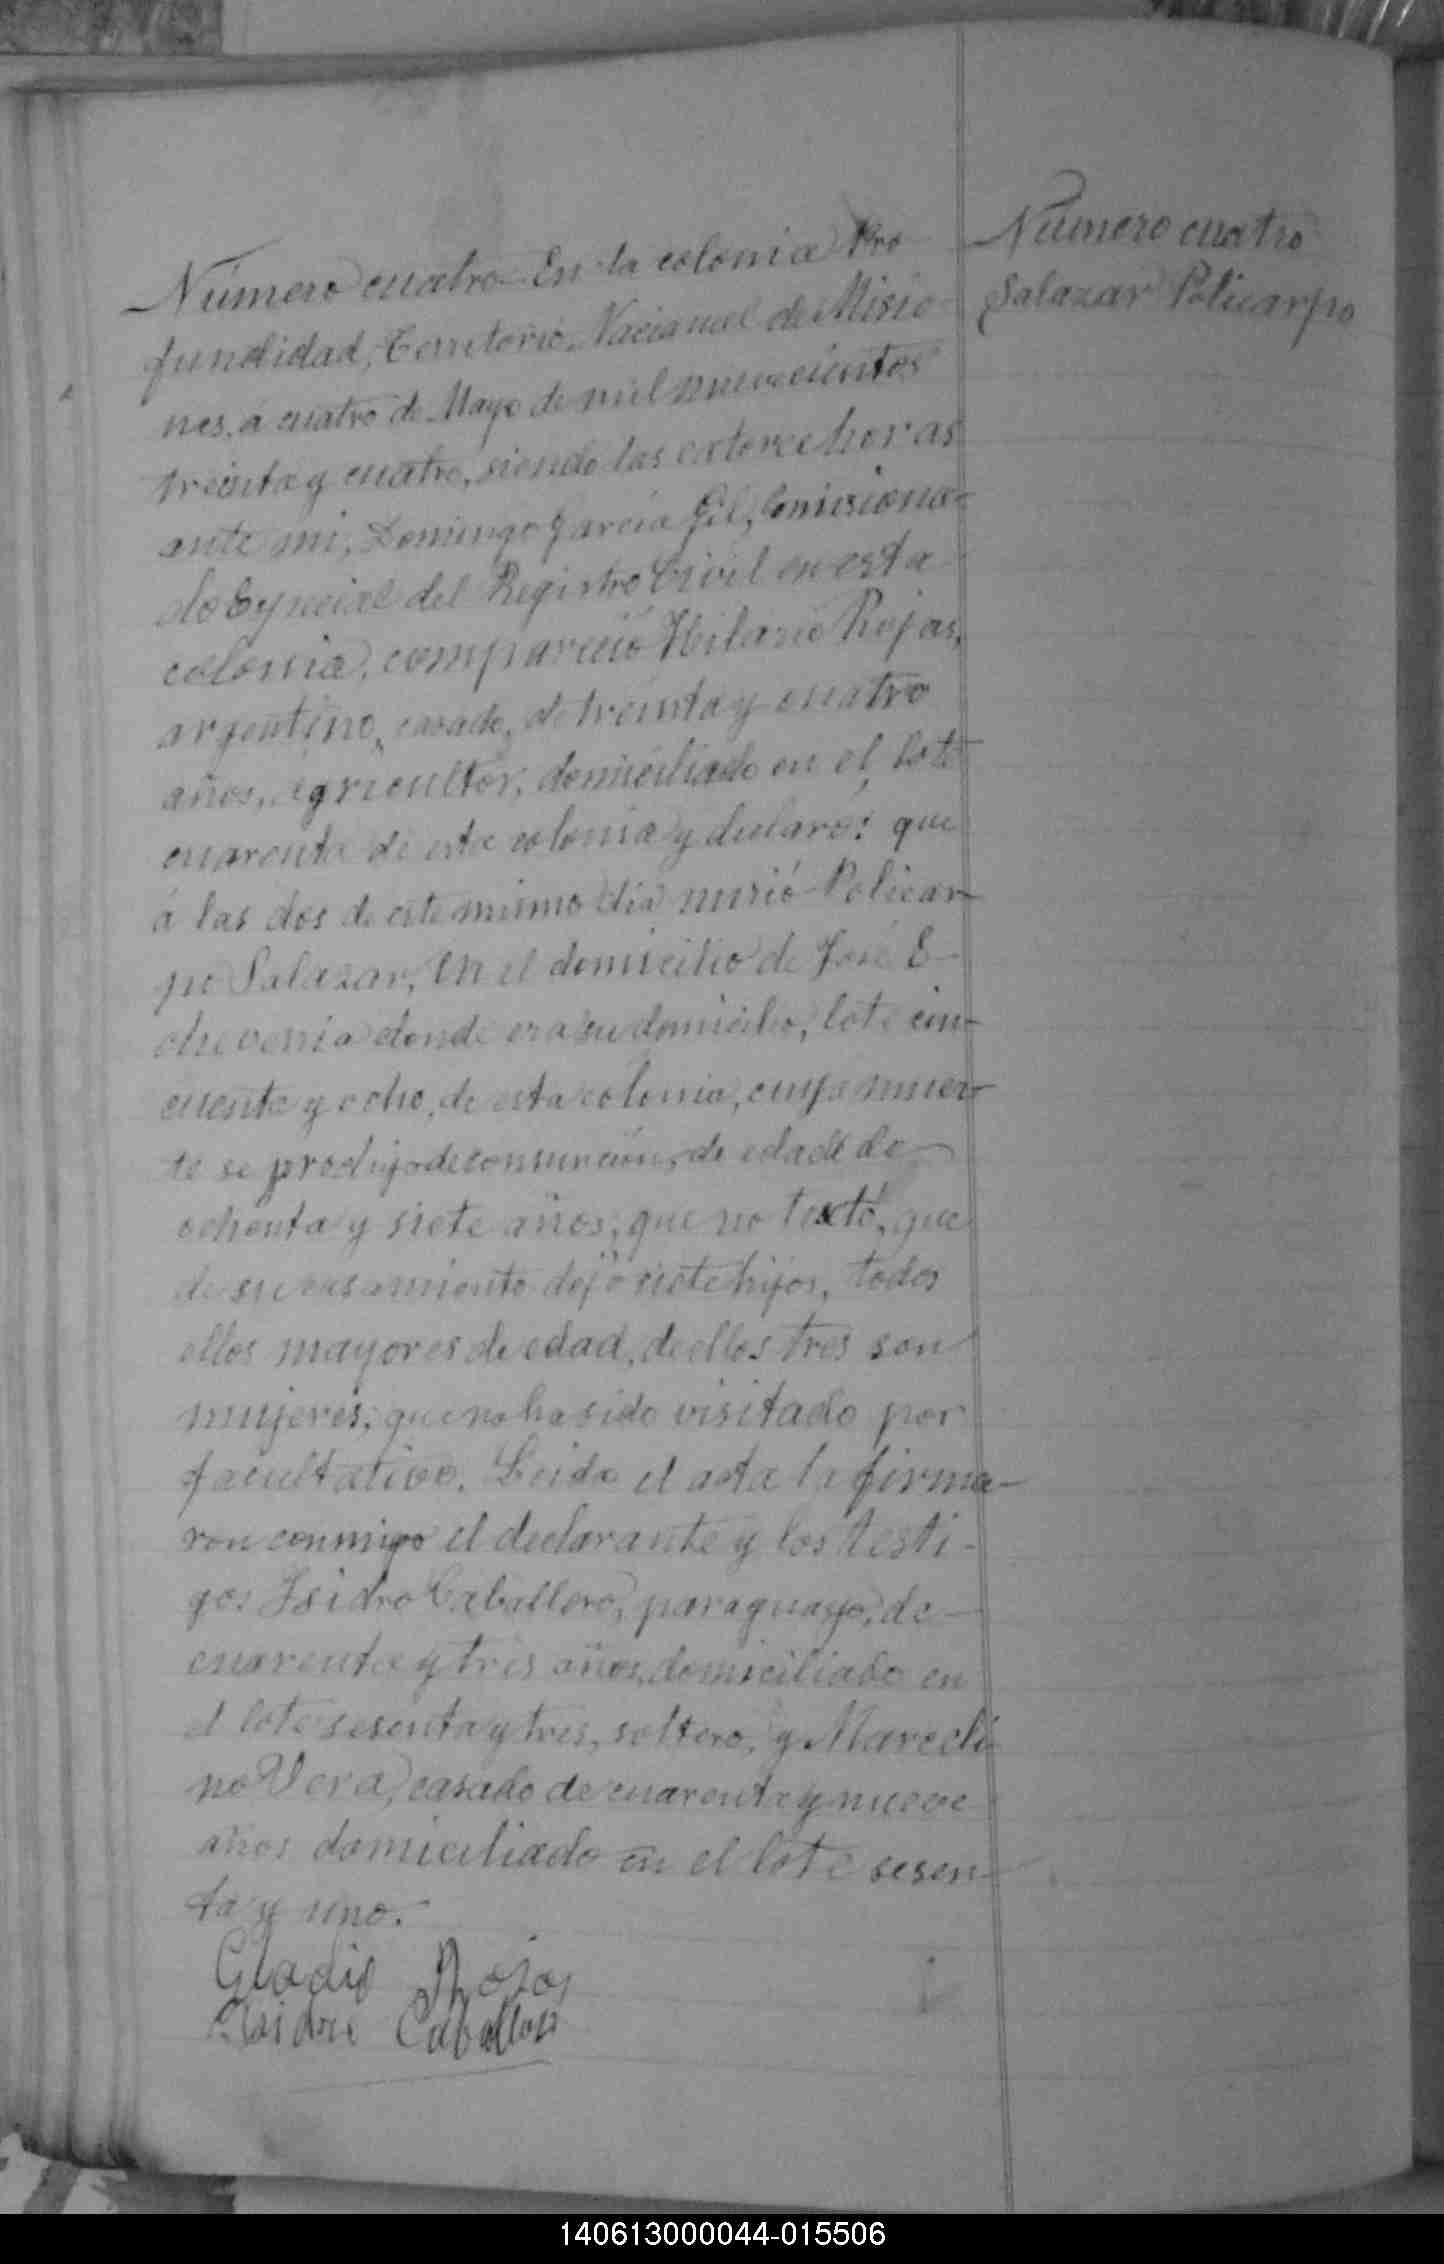 Número cuatro
Salazar Policarpo
Número cuatro En la colonia Pro
fundidad, Territorio Nacional de Misio
nes, á cuatro de Mayo de mil nuevecientos
treinta y cuatro, siendo las catorce horas
ante mi, Domingo García Gil, Comisiona-
do Especial del Registro Civil en esta
colonia, compareció Hilario Rojas,
argentino, casado, de treinta y cuatro
años, agricultor, domiciliado en el lote
cuarenta de esta colonia y declaró: que
á las dos de este mismo dia murió Policar-
po Salazar, en el domicilio de José E-
cheverria donde era su domicilio, lote cin-
cuenta y ocho, de esta colonia, cuya muer-
te se produjo de consunción, de edad de
ochenta y siete años, que no testó, que
de su casamiento dejó siete hijos, todos
ellos mayores de edad, de ellos tres son
mujeres, que no ha sido visitado por
facultativo. Leida el acta la firma-
ron conmigo el declarante y los testi-
gos Isidro Caballero, paraguayo, de
cuarenta y tres años, domiciliado en
el lote sesenta y tres, soltero, y Marceli
no Vera, casado de cuarenta y nueve
años domiciliado en el lote sesen-
ta y uno.
Rojas
Isidro Caballero
140613000044-015506